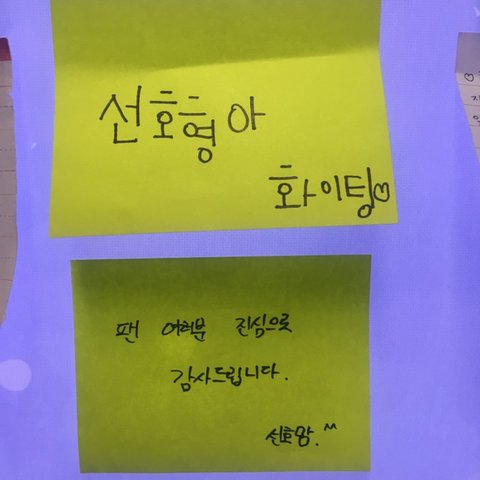 선호형아
화이팅♡
팬 여러분 진심으로
감사드립니다.
선호맘.^^